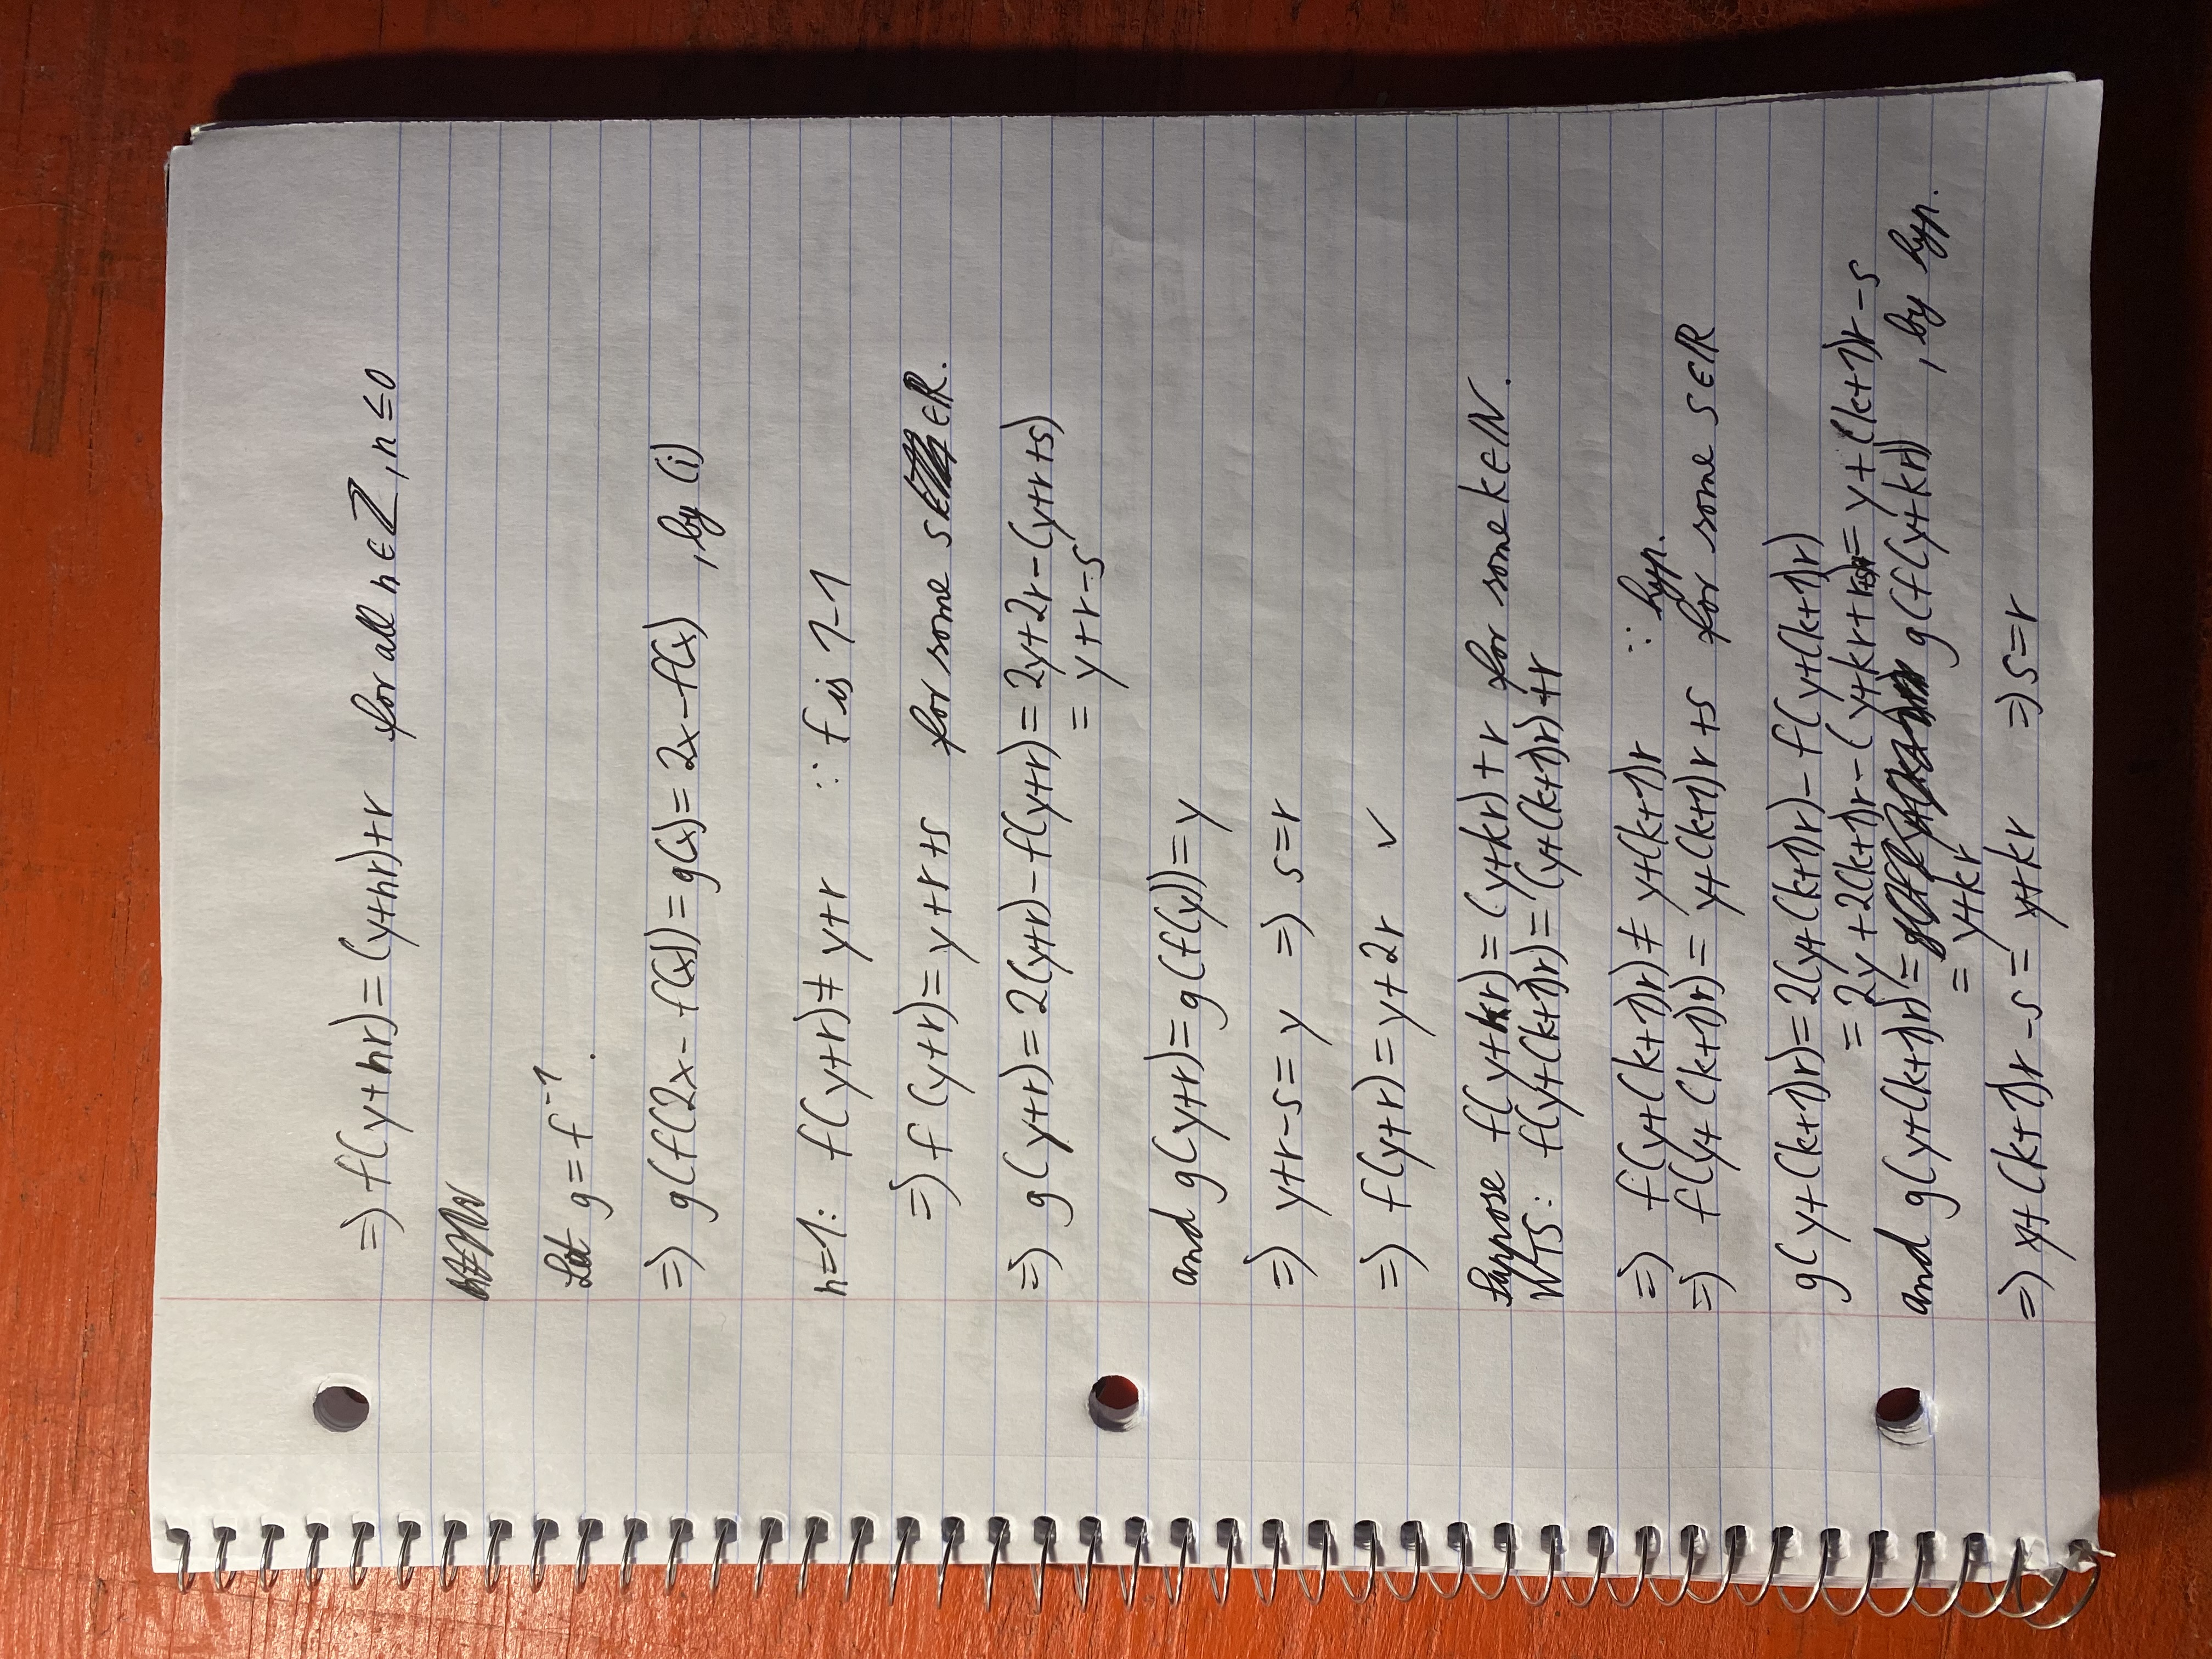 ⇒ f(y+nr) = (y+nr)+r for all n ∈ ℤ, n ≤ 0
Let g = f⁻¹.
⇒ g(f(2x - f(x)) = g(x) = 2x - f(x) , by (i)
n=1: f(y+r) ≠ y+r ∵ f is 1-1
⇒ f(y+r) = y+r+s for some s ∈ ℝ.
⇒ g(y+r) = 2(y+r) - f(y+r) = 2y+2r-(y+r+s)
= y+r-s
and g(y+r) = g(f(y)) = y
⇒ y+r-s = y ⇒ s=r
⇒ f(y+r) = y+2r ✓
Suppose f(y+kr) = (y+kr)+r for some k ∈ ℕ.
WTS: f(y+(k+1)r) = (y+(k+1)r)+r
⇒ f(y+(k+1)r) ≠ y+(k+1)r ∵ hyp.
⇒ f(y+(k+1)r) = y+(k+1)r+s for some s ∈ ℝ
g(y+(k+1)r) = 2(y+(k+1)r) - f(y+(k+1)r)
= 2y+2(k+1)r-(y+kr+r+s) = y+(k+1)r-s
and g(y+(k+1)r) = g(f(y+kr)) , by hyp.
= y+kr
⇒ y+(k+1)r-s = y+kr ⇒ s=r